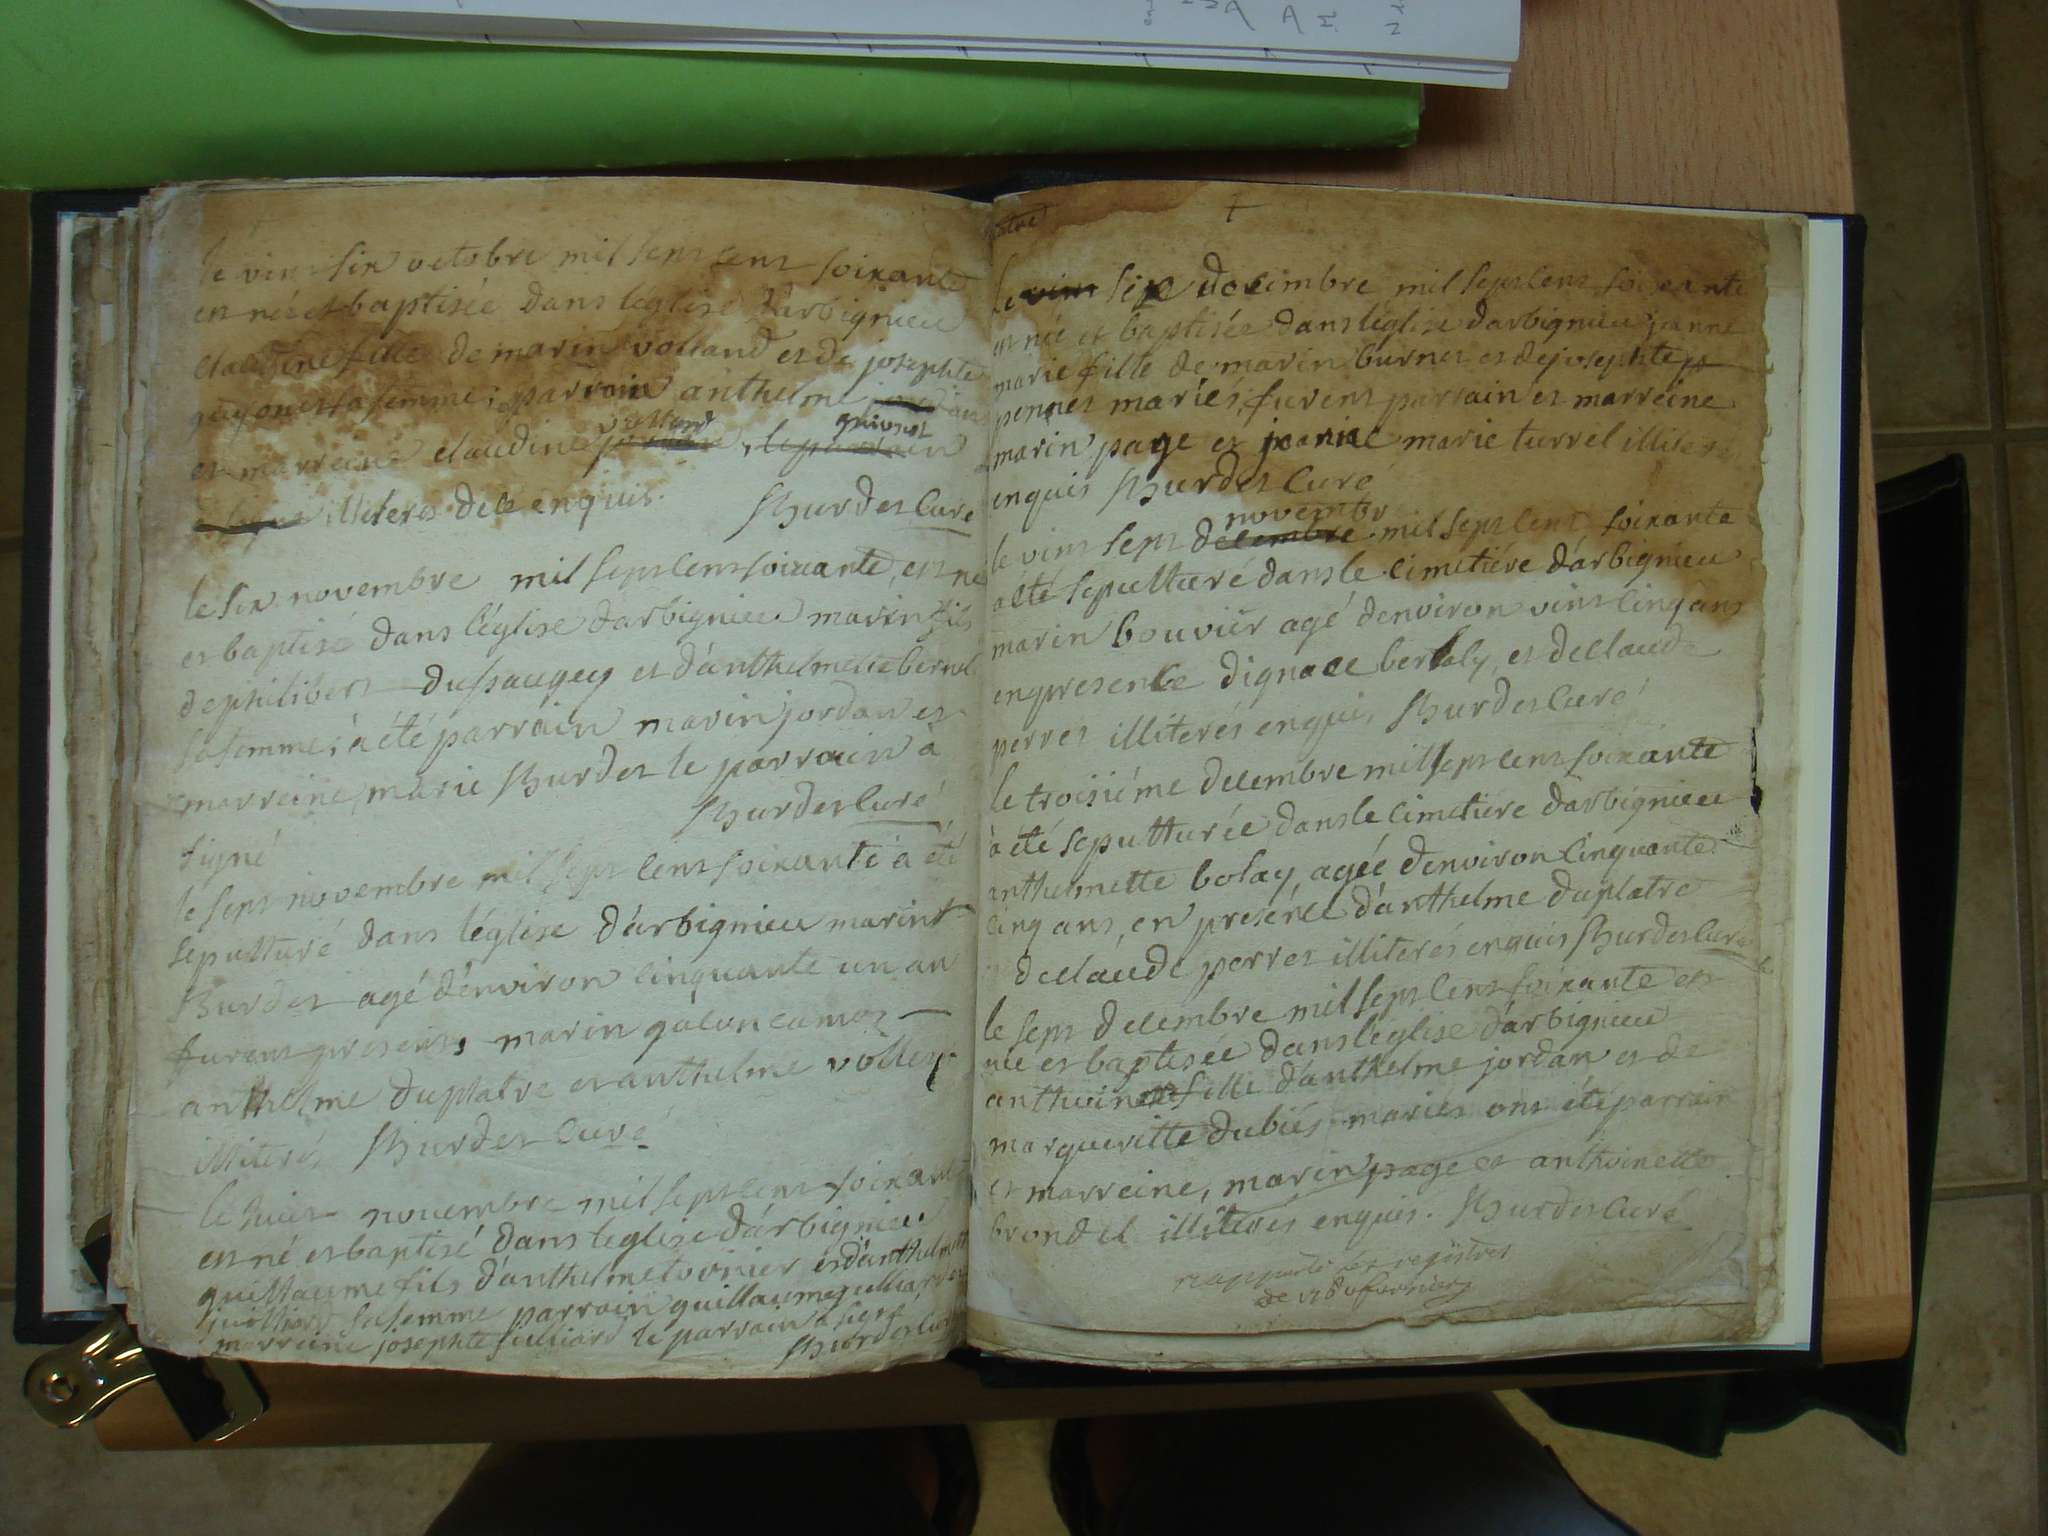 le vint six octobre mil sept cent soixante
est née et baptisée dans l'église d'arbignieu
claudine fille de marin volland et de josephte
guyonet sa femme; parrain anthelme
et marreine claudine volland
guionet
illiteres de ce enquis. Hurdet Curé
le six novembre mil sept cent soixante, est né
et baptisé dans l'église darbignieu marin fils
de philibert dussaugey et d'anthelmette bernel
sa femme; à été parrain marin jordan et
marreine, marie Hurdet le parrain à
signé Hurdet Curé
le sept novembre mil sept cent soixante à été
sepulturé dans l'église d'arbignieu marin
Hurdet agé d'environ cinquante un an
furent presens, marin
anthelme duplatre et anthelme
illiterés Hurdet Curé
le huict novembre mil sept cent soixante
est né et baptisé dans l'eglise d'arbignieu
guillaume fils d'anthelme tornier et d'anthelmette
juilliard sa femme parrain guillaume juilliard
marreine josephte juilliard le parrain à signé
Hurdet Curé
le vint six decembre mil sept cent soixante
est née et baptisée dans l'église darbignieu jeanne
marie fille de marin burnet et de josephte
pennet mariés, furent parrain et marreine
marin page et jeanne marie turrel illiterés
enquis Hurdet Curé
novembre
le vint sept decembre mil sept cent soixante
a été sepulturé dans le cimetiére d'arbignieu
marin bouvier agé denviron vint cinq ans
en presence d'ignace berlaly, et de claude
perret illiterés enquis Hurdet Curé
le troisiéme decembre mil sept cent soixante
à été sepulturée dans le cimetiére d'arbignieu
anthelmette bolay, agée d'environ cinquante
cinq ans, en presence d'anthelme duplatre
de claude perret illiterés enquis Hurdet Curé
le sept decembre mil sept cent soixante est
née et baptisée dans l'eglise d'arbignieu
anthoinette fille d'anthelme jordan et de
margueritte dubiés mariés ont été parrain
et marreine, marin page et anthoinette
brondel illiteres enquis. Hurdet Curé
rapporté des registres